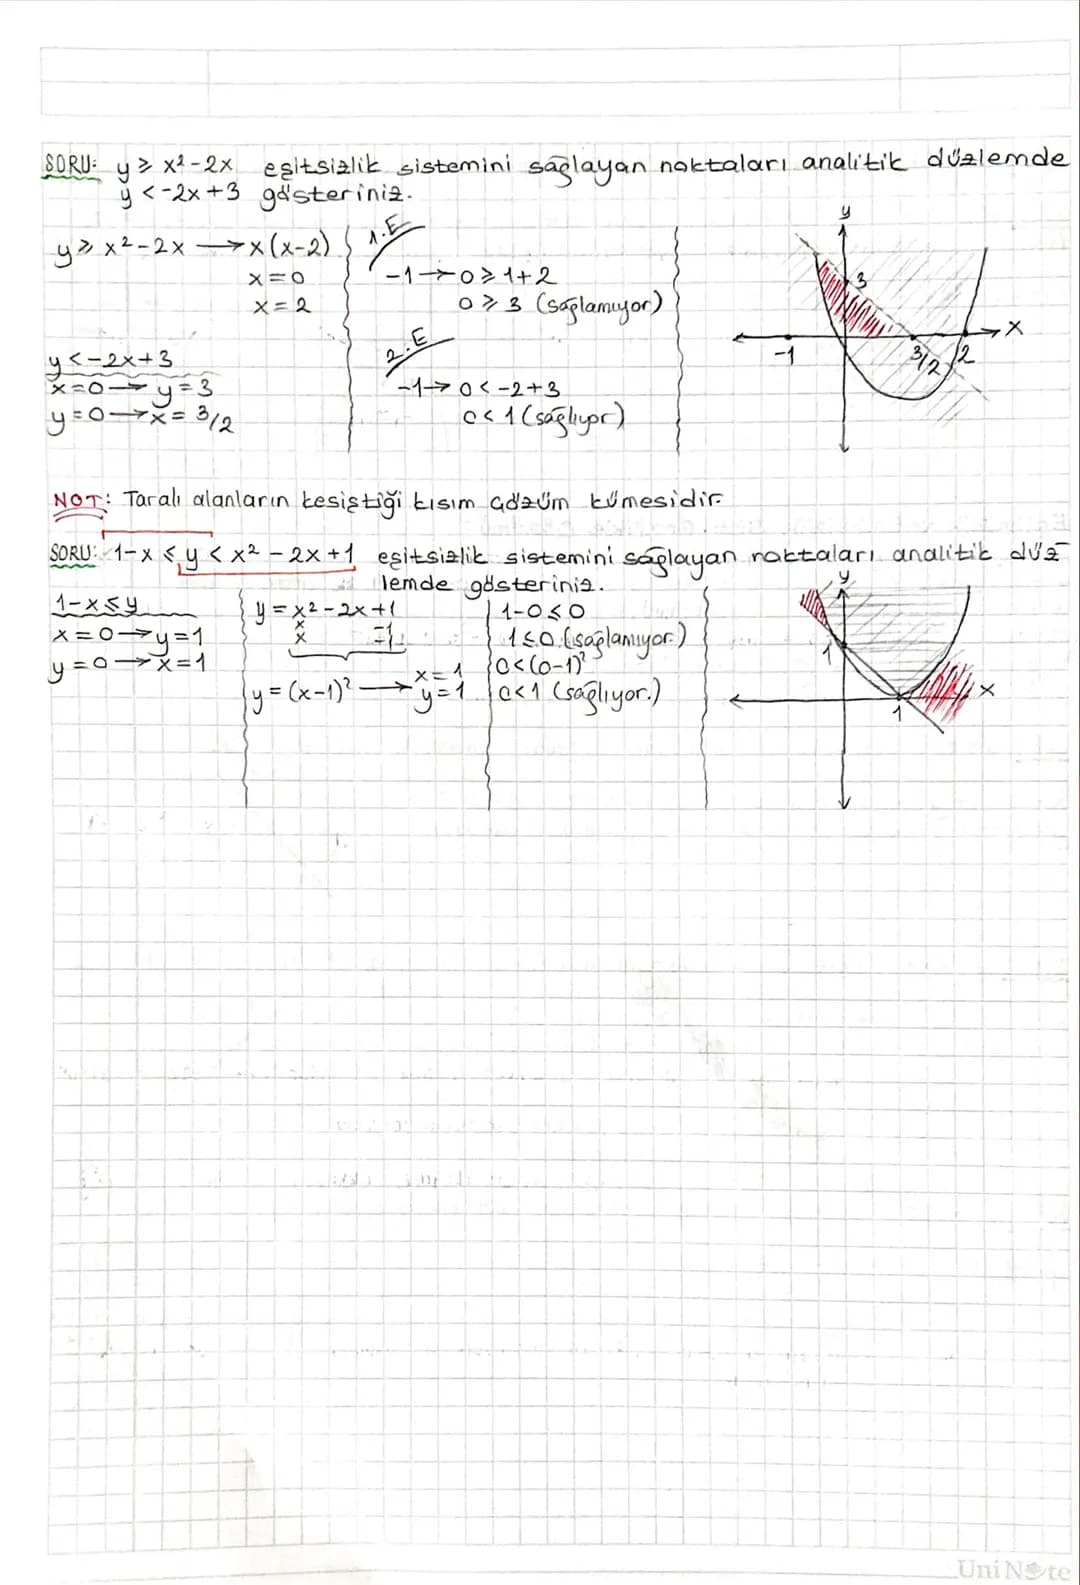 SORU: y ≥ x² - 2x eşitsizlik sistemini sağlayan noktaları analitik düzlemde
y < -2x + 3 gösteriniz.
y ≥ x² - 2x → x(x-2)
x = 0
x = 2
y < -2x + 3
x = 0 → y = 3
y = 0 → x = 3/2
1.E
-1 → 0 ≥ 1 + 2
0 ≥ 3 (sağlamıyor)
2.E
-1 → 0 < -2 + 3
0 < 1 (sağlıyor)
y
3
x
-1
3/2
2
NOT: Taralı alanların kesiştiği kısım çözüm kümesidir.
SORU: 1 - x ≤ y < x² - 2x + 1 eşitsizlik sistemini sağlayan noktaları analitik düz
lemde gösteriniz.
1 - x ≤ y
x = 0 → y = 1
y = 0 → x = 1
y = x² - 2x + 1
x -1
x -1
y = (x-1)² → x = 1
y = 1
1 - 0 ≤ 0
1 ≤ 0 (sağlamıyor.)
0 < (0-1)²
0 < 1 (sağlıyor.)
y
1
x
1
UniNote